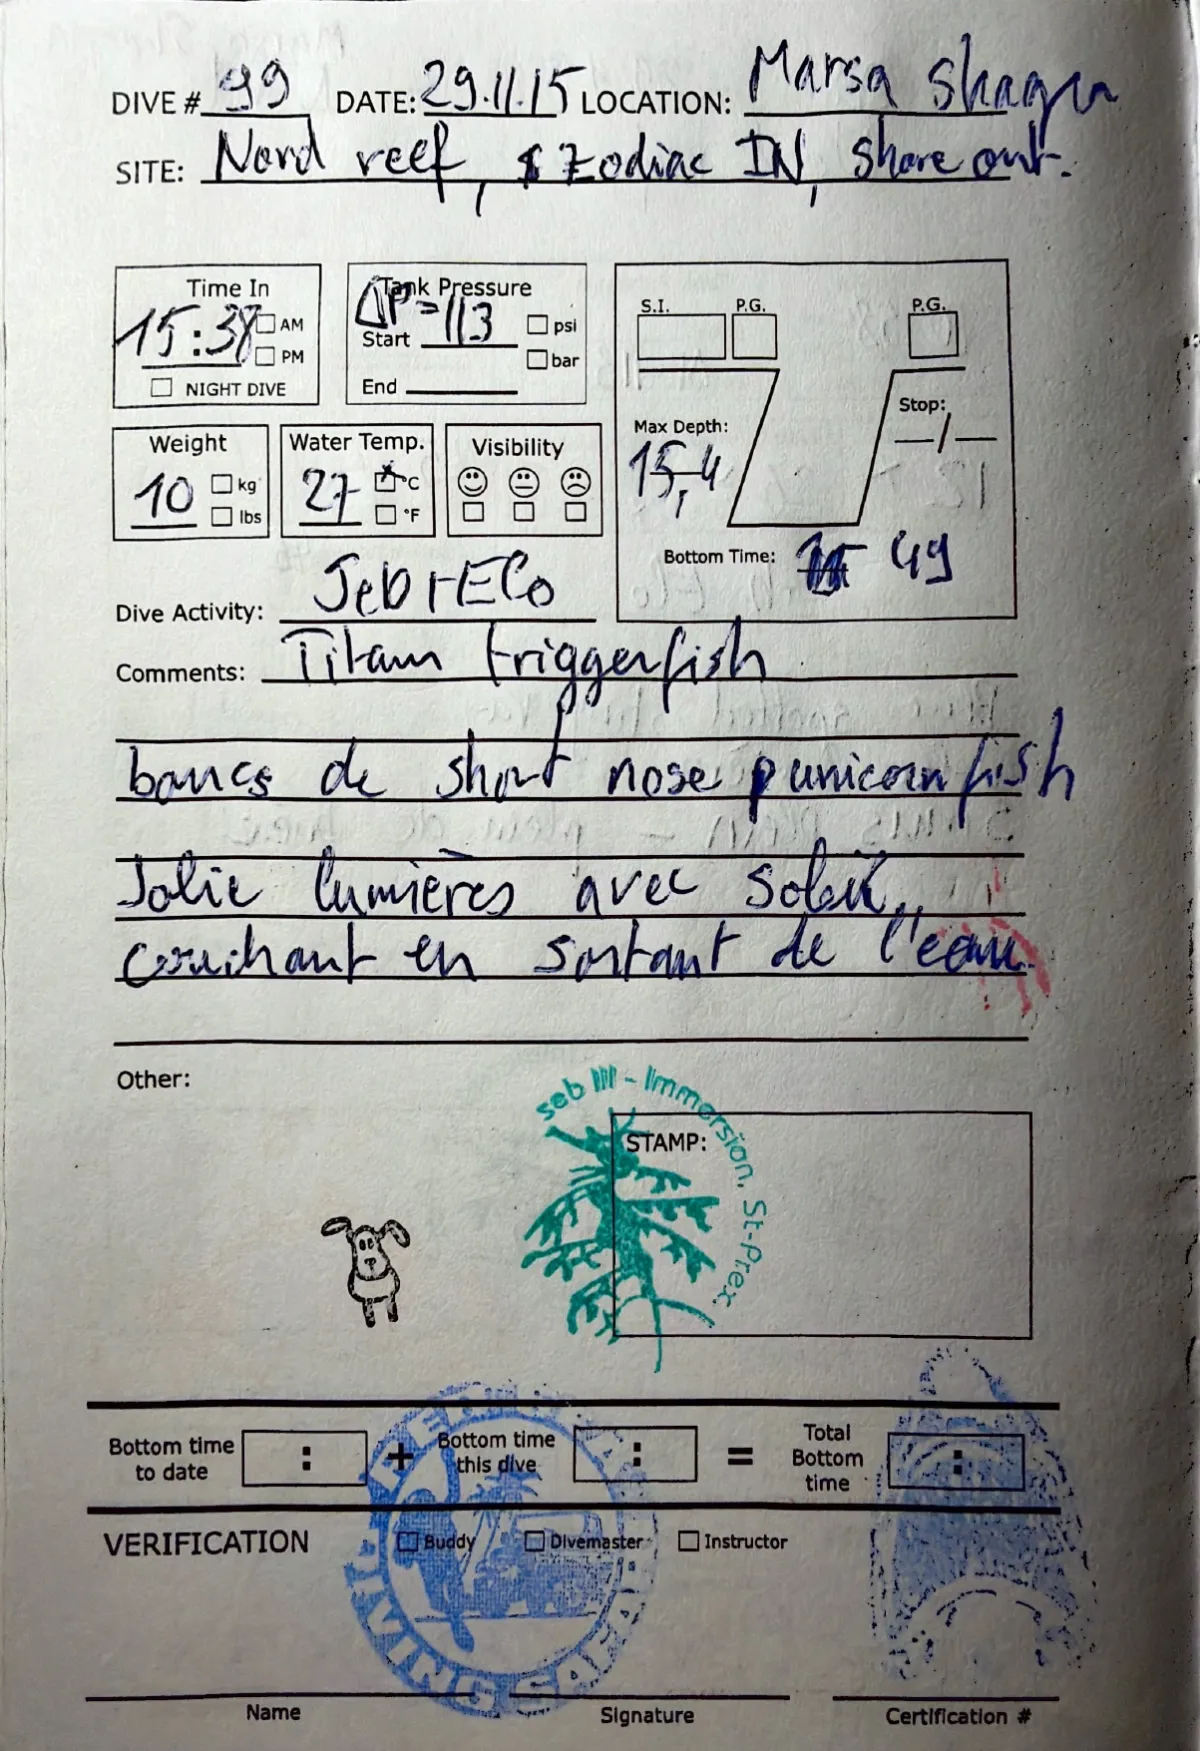 DIVE # 99 DATE: 29.11.15 LOCATION: Marsa Shagra
SITE: Nord reef, Zodiac IN, shore out.
Time In
15:38 AM
PM
NIGHT DIVE
Tank Pressure
ΔP = 113
Start psi
bar
End
S.I. P.G. P.G.
Max Depth: Stop:
15,4 /
Bottom Time: 49
Weight
10 kg
lbs
Water Temp.
27 °C
°F
Visibility
Dive Activity: Seb + Elo
Comments: Titan triggerfish
bancs de short nose unicornfish
Jolie lumières avec soleil
couchant en sortant de l'eau
Other:
seb III - Immersion, St-Prex
STAMP:
Bottom time to date : + Bottom time this dive : = Total Bottom time :
VERIFICATION Buddy Divemaster Instructor
DIVING SAFARI
Name Signature Certification #